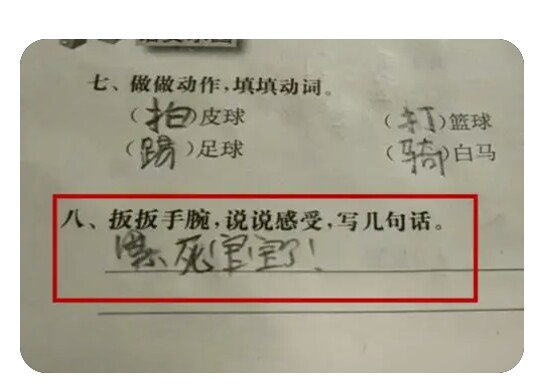 七、做做动作,填填动词。
(拍)皮球 (打)篮球
(踢)足球 (骑)白马
八、扳扳手腕,说说感受,写几句话。
累死宝宝了!